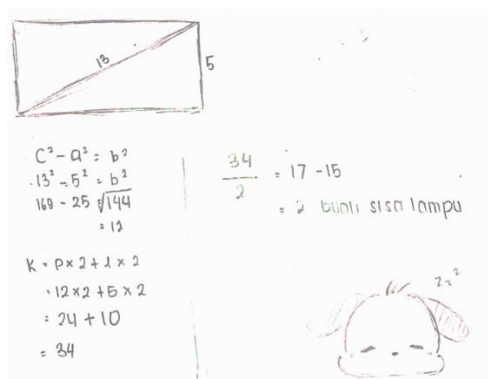 13
5
C² - a² = b²
13² - 5² = b²
169 - 25 √144
= 12
K = P × 2 + l × 2
= 12 × 2 + 5 × 2
= 24 + 10
= 34
34/2 = 17 - 15
= 2 buah sisa lampu
zz²